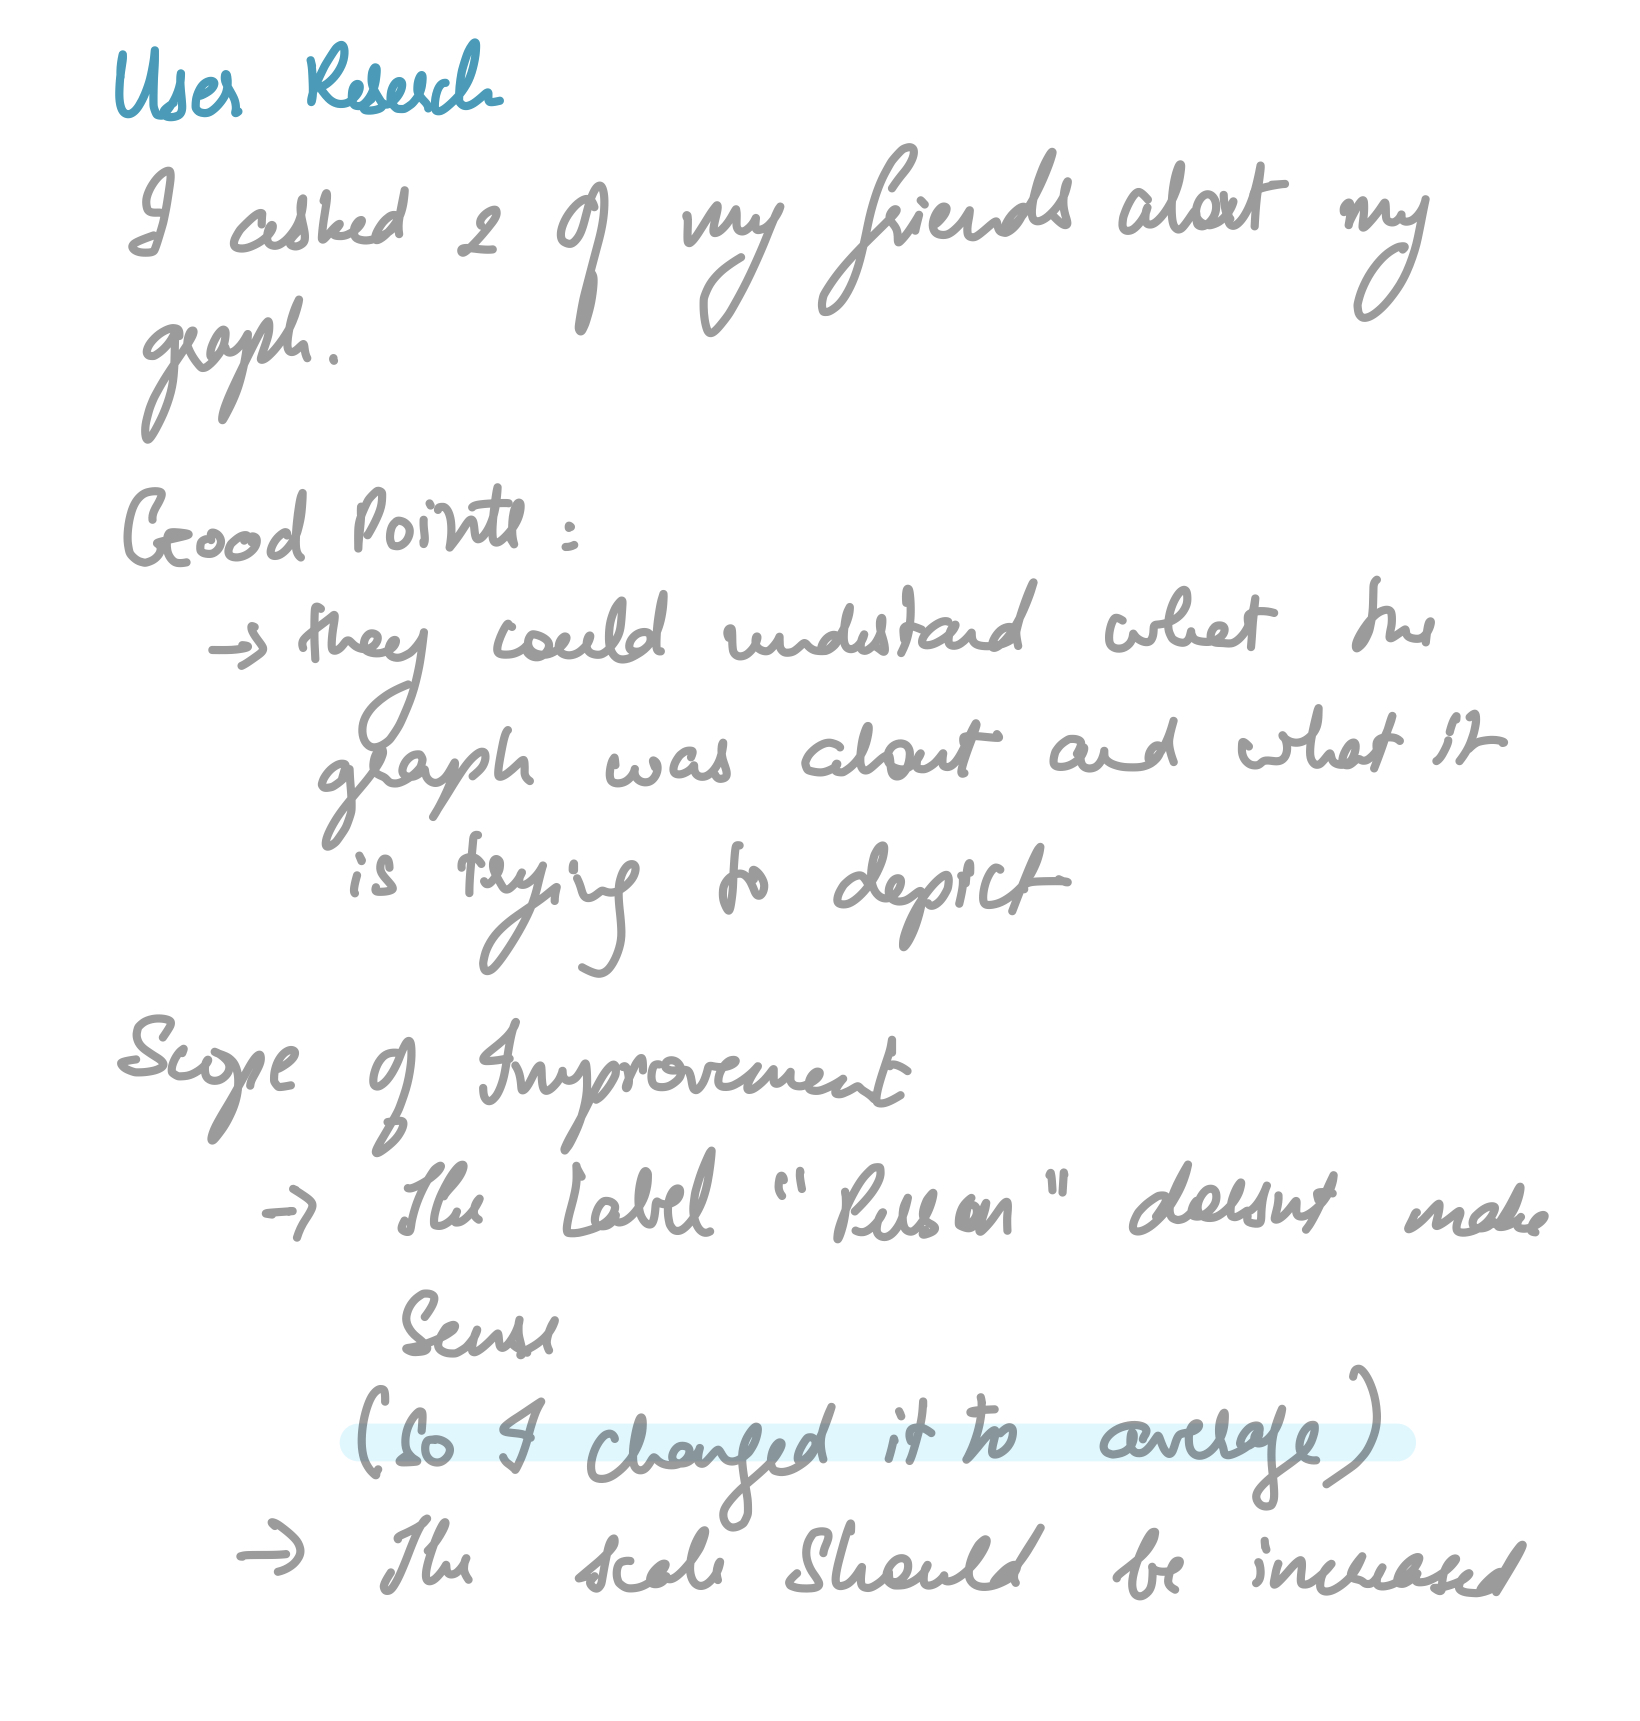 User Reserch
I asked 2 of my friends about my
graph.
Good Points :
→ they could understand what the
graph was about and what it
is trying to depict
Scope of Improvement
→ The Label "Person" doesnt make
Sense
(So I changed it to average)
→ The scale should be increased